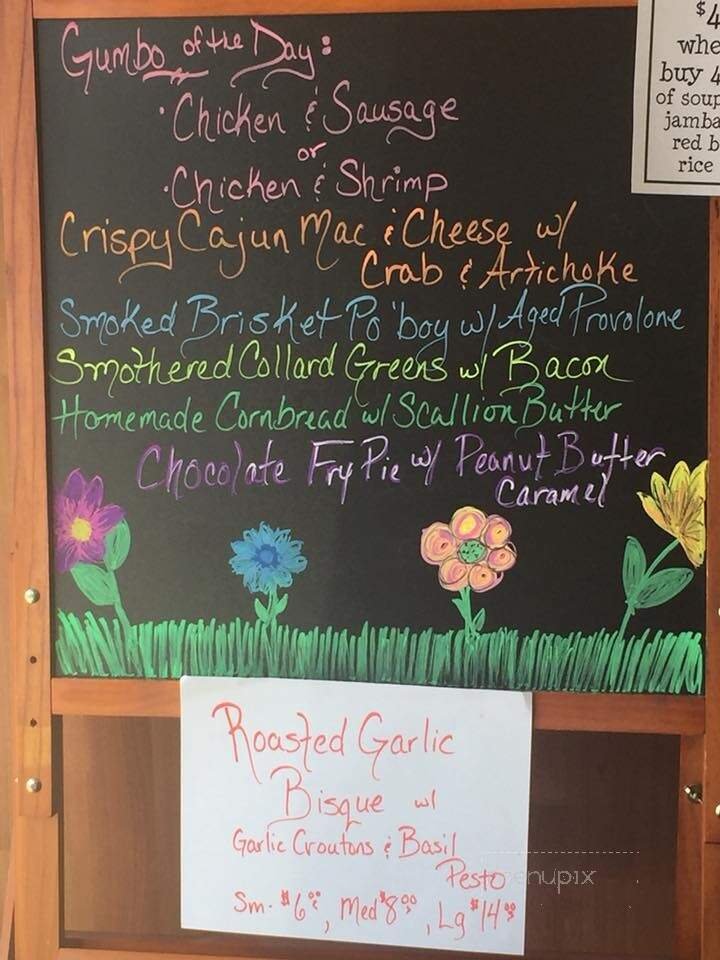 Gumbo of the Day:
• Chicken & Sausage
or
• Chicken & Shrimp
Crispy Cajun Mac & Cheese w/
Crab & Artichoke
Smoked Brisket Po'boy w/ Aged Provolone
Smothered Collard Greens w/ Bacon
Homemade Cornbread w/ Scallion Butter
Chocolate Fry Pie w/ Peanut Butter
Caramel
$4
whe
buy 4
of soup
jamba
red b
rice
Roasted Garlic
Bisque w/
Garlic Croutons & Basil
Pesto
Sm. $6.00, Med $8.00, Lg $14.00
menupix